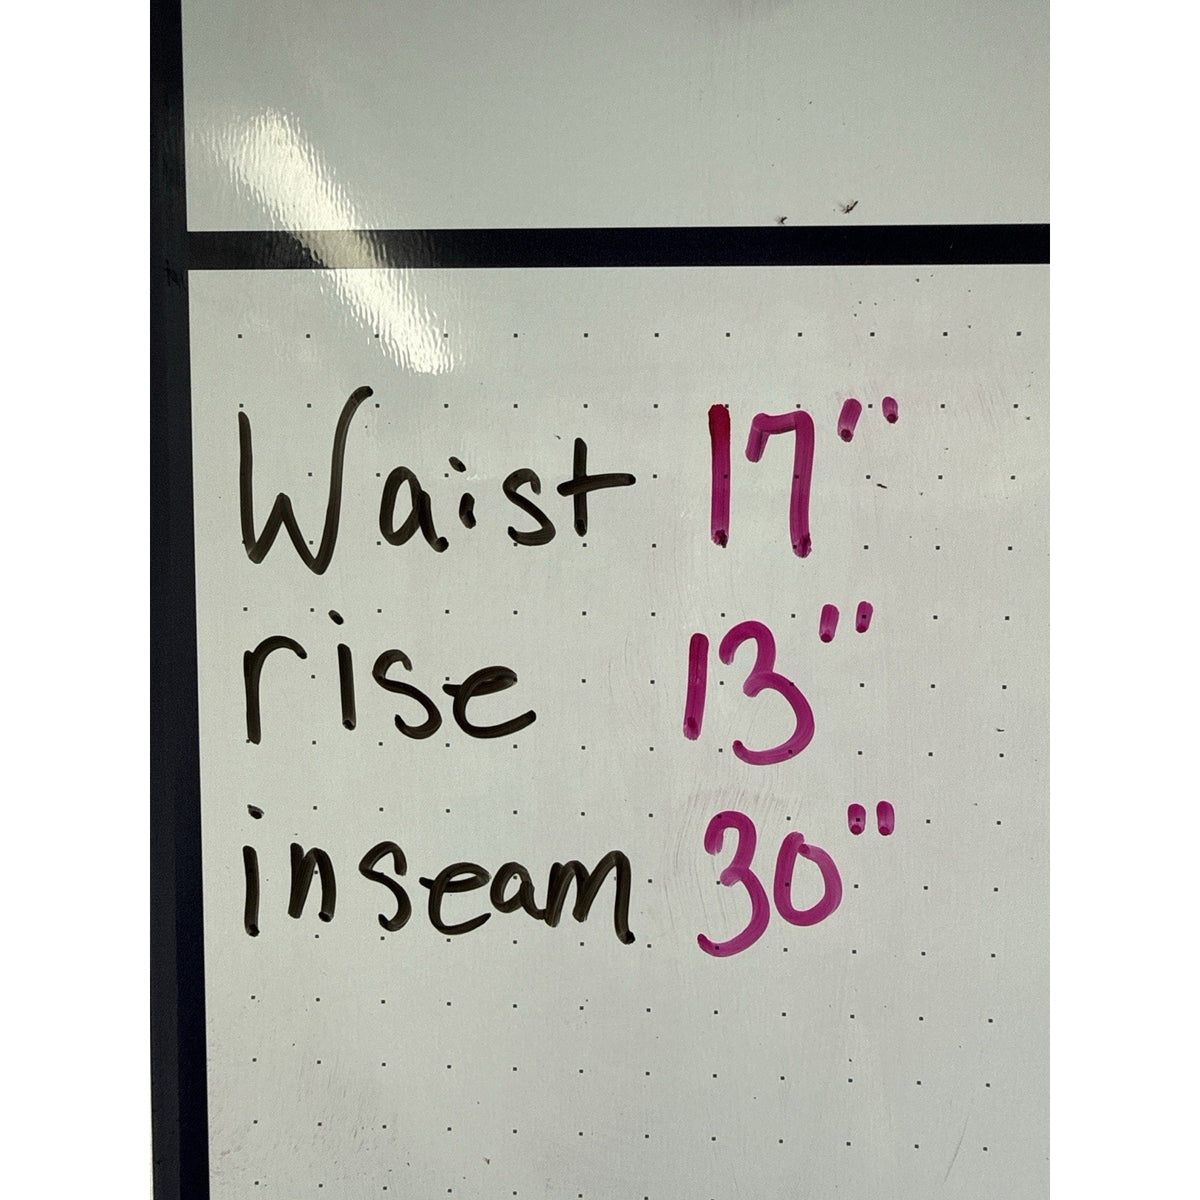 Waist 17"
rise 13"
inseam 30"